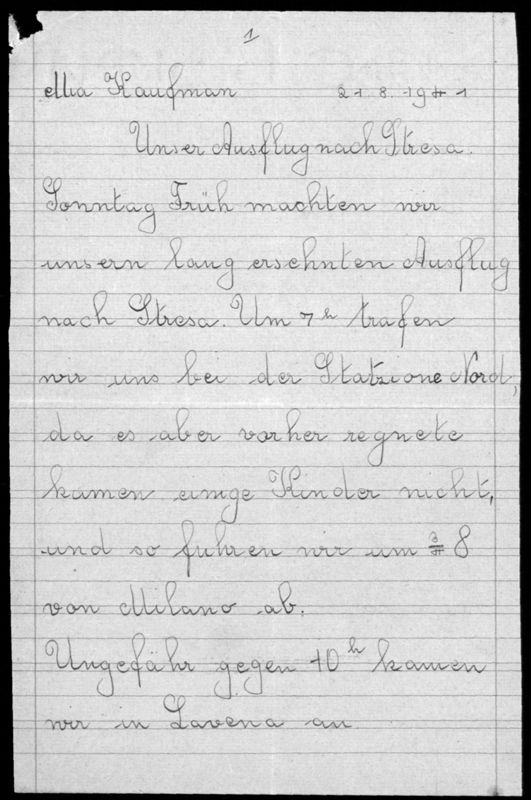 1
Mia Kaufman 21.8.1941
Unser Ausflug nach Stresa.
Sonntag Früh machten wir
unsern lang ersehnten Ausflug
nach Stresa. Um 7 h trafen
wir uns bei der Statzione Nord,
da es aber vorher regnete
kamen einige Kinder nicht,
und so fuhren wir um 3/4 8
von Milano ab.
Ungefähr gegen 10 h kamen
wir in Lavena an